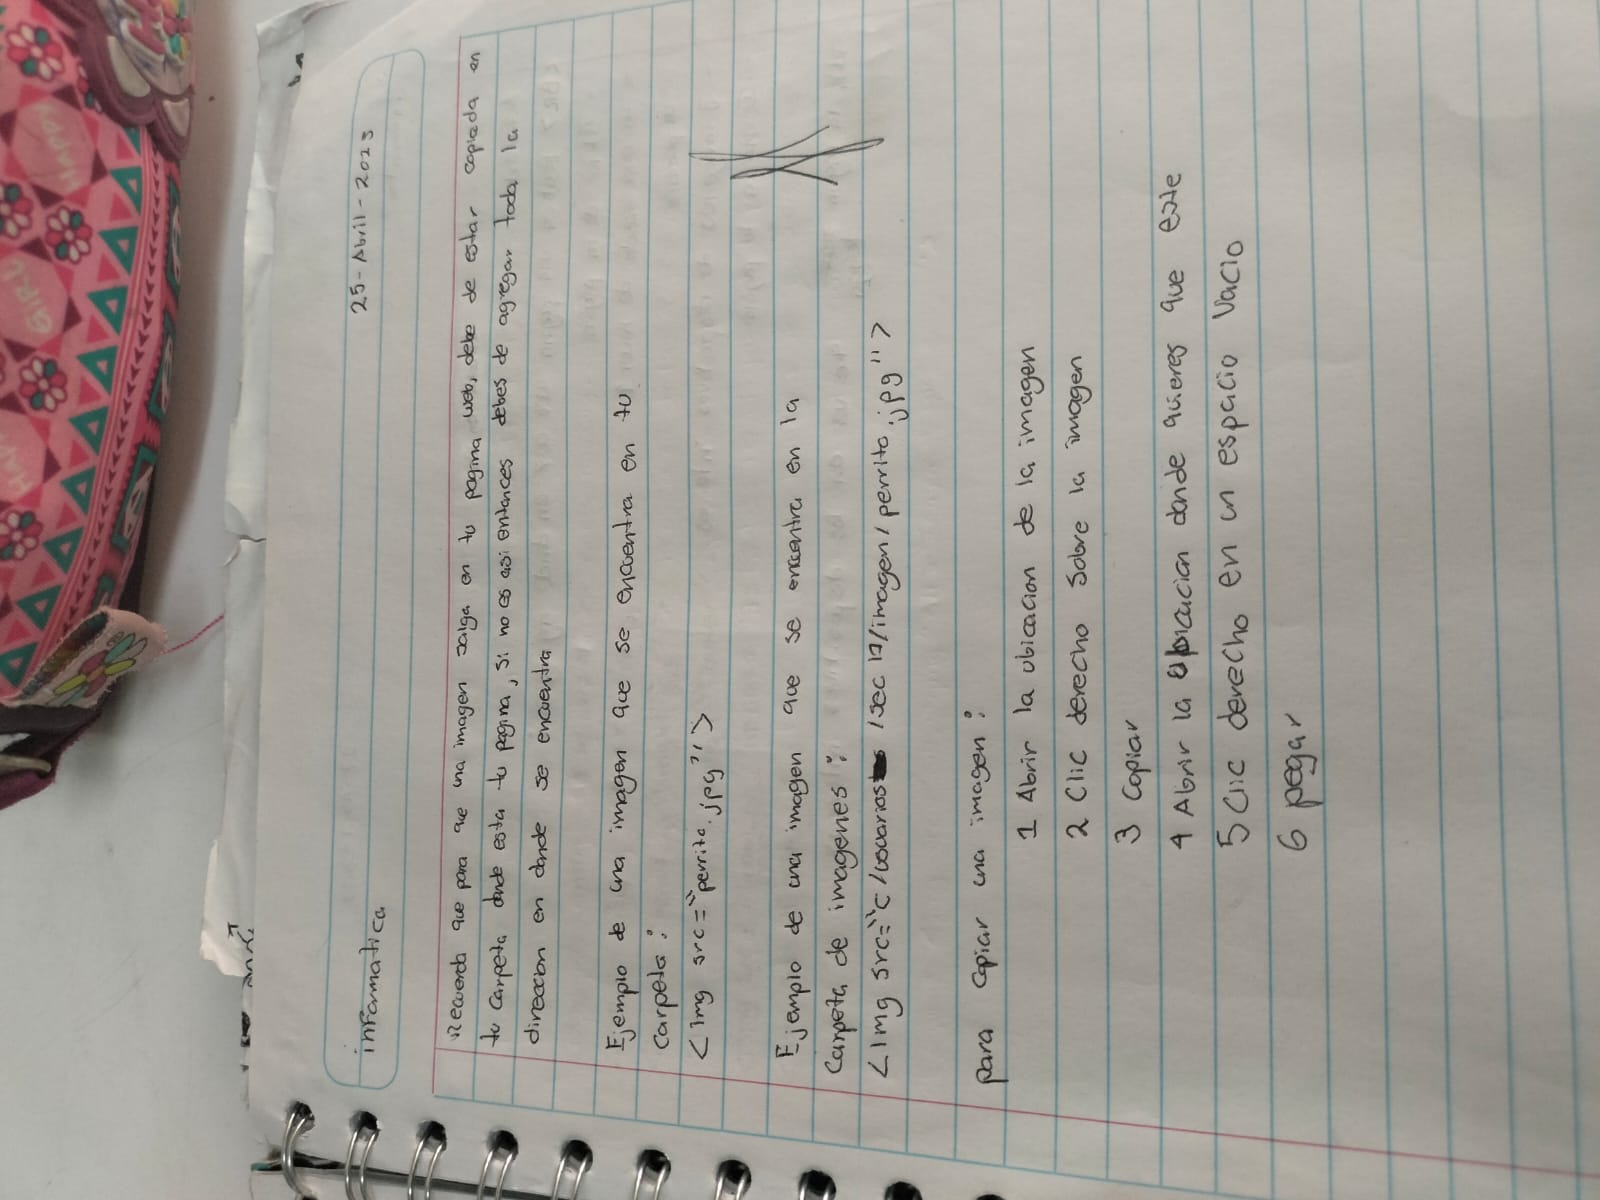 informatica
25-Abril-2023
Recuerda que para que una imagen salga en tu pagina web, debe de estar copiada en
tu carpeta donde esta tu pagina, si no es asi entonces debes de agregar toda la
direccion en donde se encuentra
Ejemplo de una imagen que se encuentra en tu
carpeta:
<img src="perrito.jpg">
Ejemplo de una imagen que se encuentra en la
carpeta de imagenes:
<img src="c/usuarios/sec 17/imagen/perrito.jpg">
para copiar una imagen:
1 Abrir la ubicacion de la imagen
2 Clic derecho sobre la imagen
3 Copiar
4 Abrir la ubicacion donde quieres que este
5 Clic derecho en un espacio vacio
6 pegar
HAPPY
GIRL